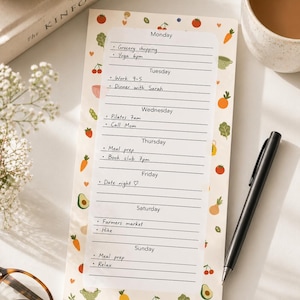 THE KINFO
Monday
• Grocery shopping
• Yoga 6pm
Tuesday
• Work 9-5
• Dinner with Sarah
Wednesday
• Pilates 7am
• Call Mom
Thursday
• Meal prep
• Book club 7pm
Friday
• Date night ♡
Saturday
• Farmers market
• Hike
Sunday
• Meal prep
• Relax